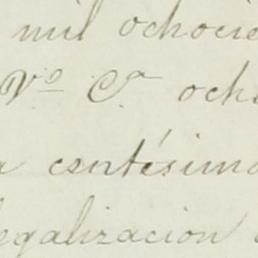 mil ochocie
Vº Cª och
a centésimo
legalizacion